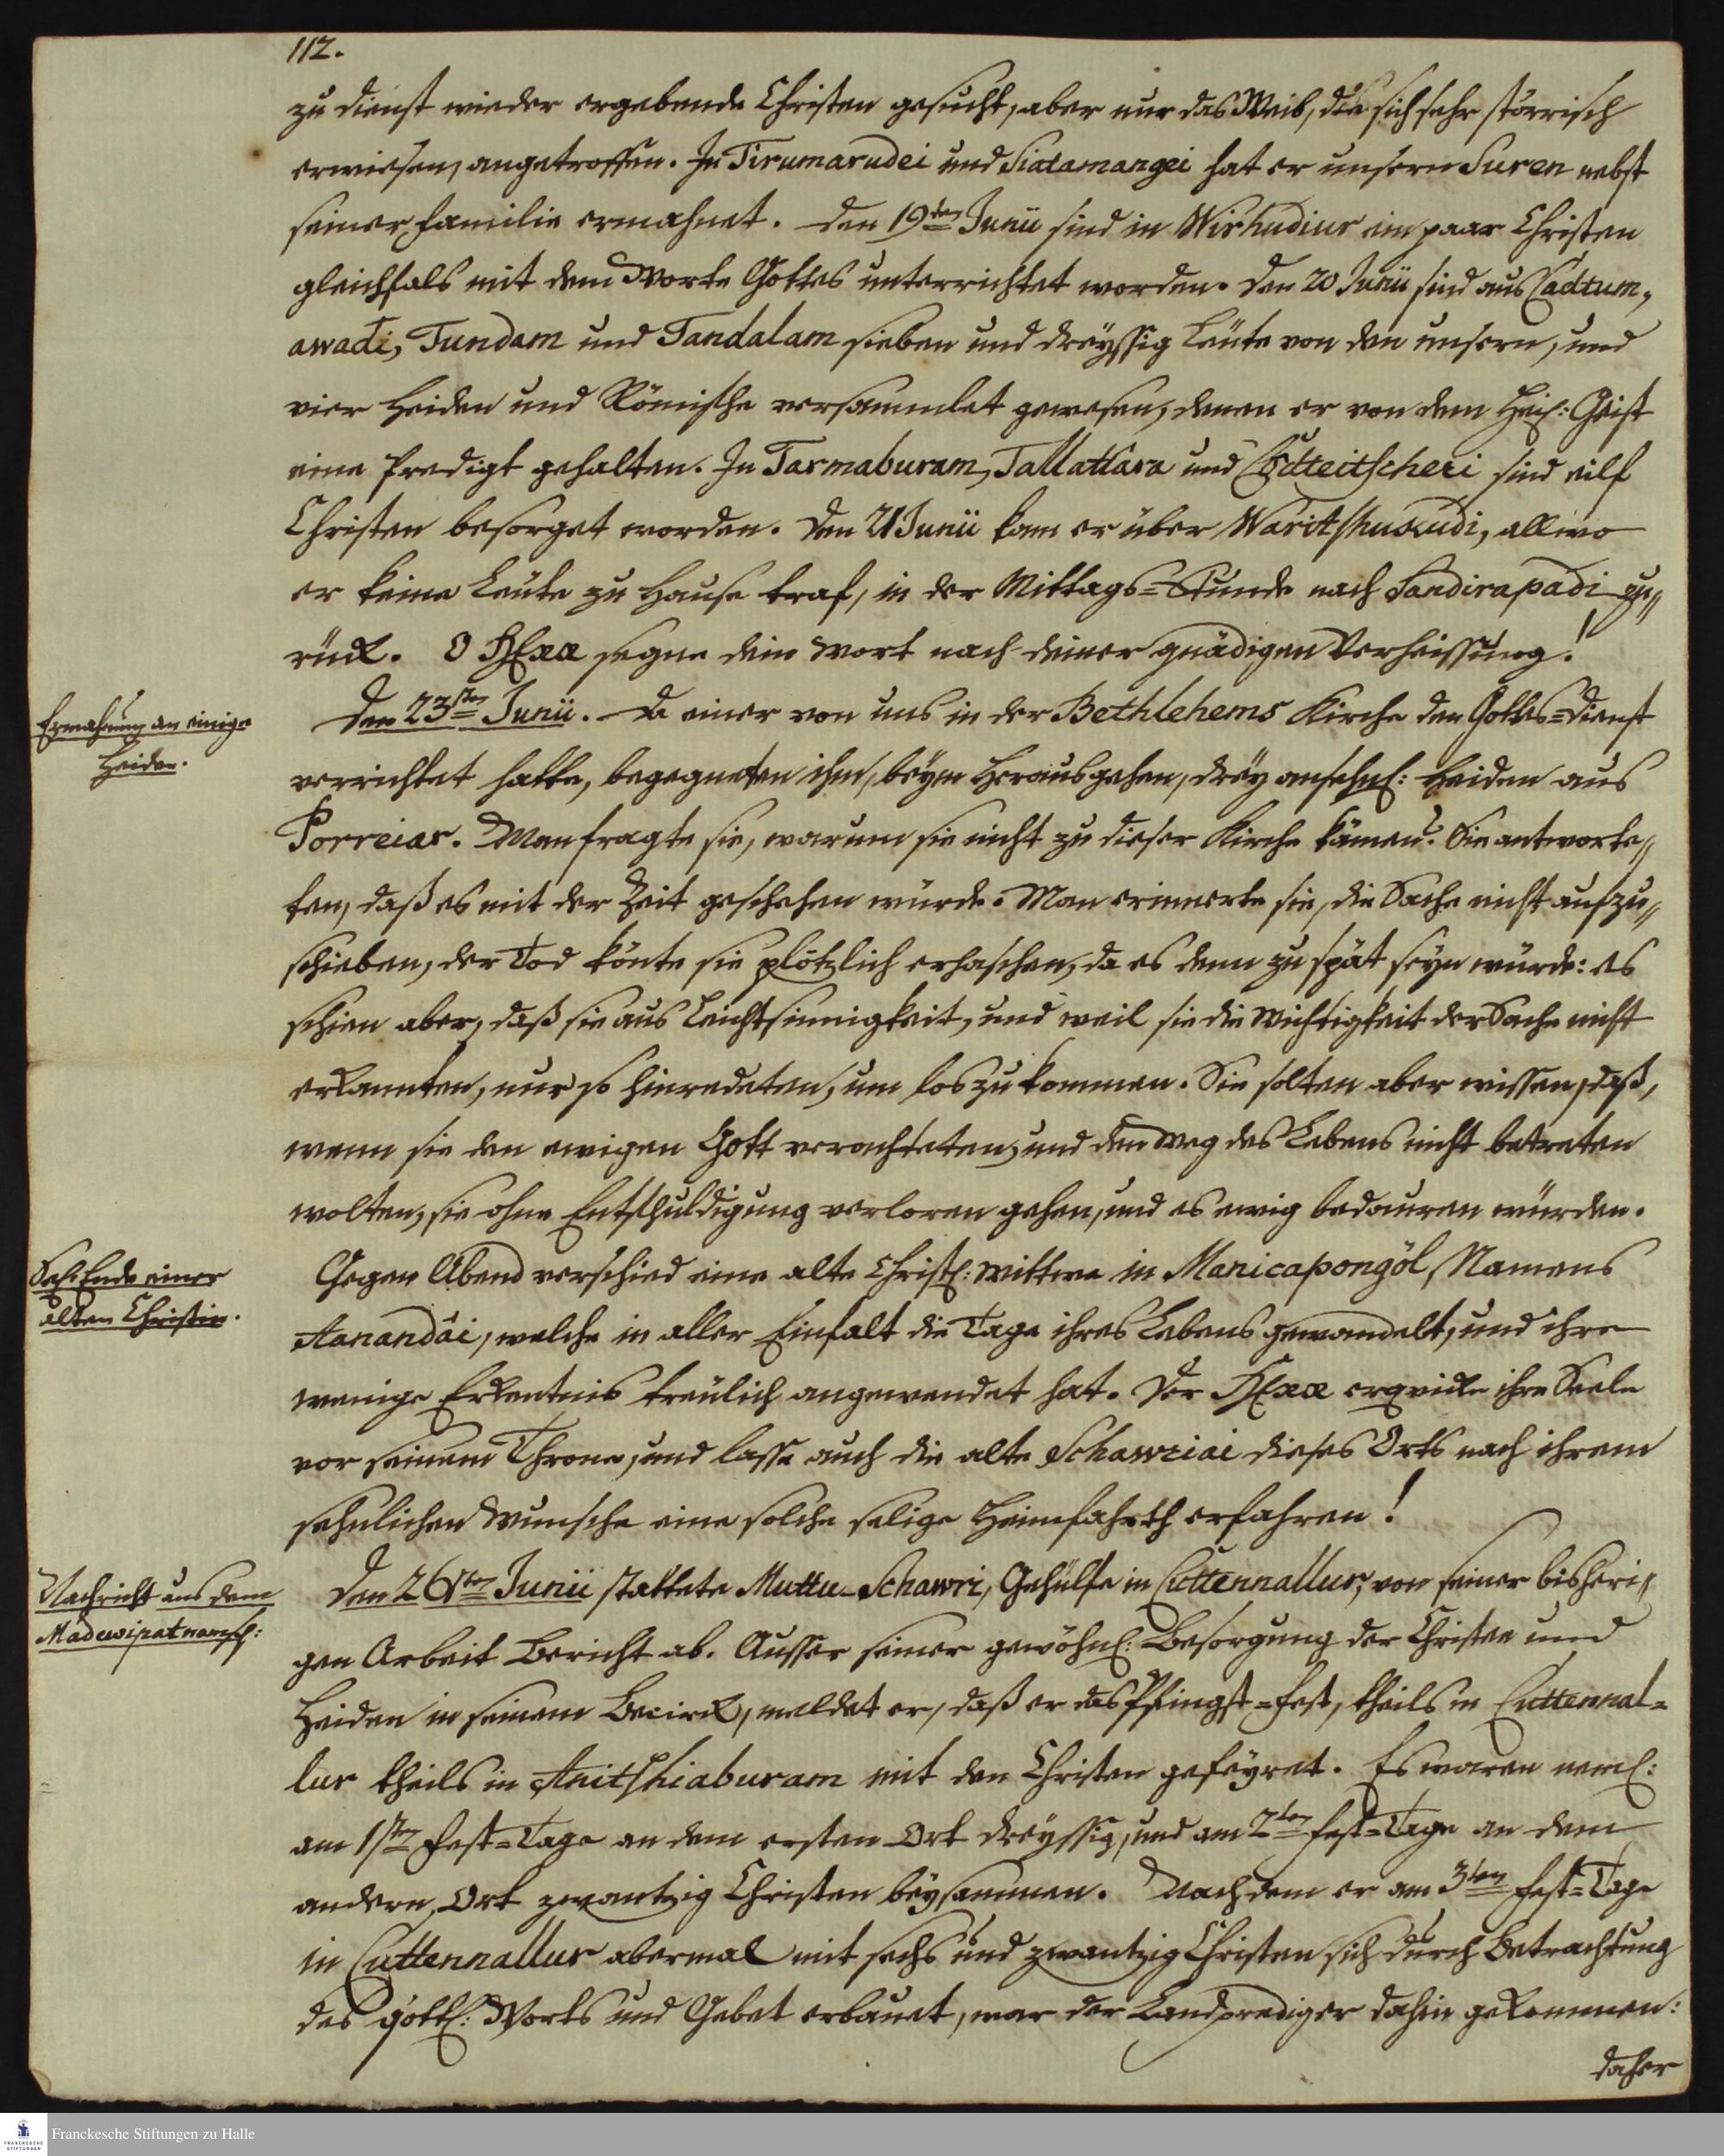 112.
zu dienst wieder ergebende Christen gesucht, aber nur das Weib, die sich sehr störrisch
erwiesen, angetroffen. In Tirumarudei und Siatamangei hat er unsern Suren nebst
seiner Familie ermahnet. Den 19ten Junii sind in Wirkudiur ein paar Christen
gleichfals mit dem Worte Gottes unterrichtet worden. Den 20 Junii sind aus Cadtum„
awadi, Tundam und Tandalam sieben und dreyssig Leute von den unsern, und
vier Heiden und Römische versammlet gewesen, denen er von dem Heil: Geist
eine Predigt gehalten. In Tarmaburam, Tallattara und Codteitscheri sind eilf
Christen besorget worden. Den 21 Junii kam er über Waritshucudi, allwo
er keine Leute zu Hause traf, in der Mittags=Stunde nach Sandirapadi zu„
rück. O HErr segne dein Wort nach deiner gnädigen Verheissung!
Ermahnung an einige
Heiden.
Den 23sten Junii. Da einer von uns in der Bethlehems Kirche den Gottes=dienst
verrichtet hatte, begegneten ihm, beym Herausgehen, drey ansehnl: Heiden aus
Porreiar. Man fragte sie, warum sie nicht zu dieser Kirche kämen? Sie antworte„
ten, daß es mit der Zeit geschehen würde. Man erinnerte sie, die Sache nicht aufzu„
schieben, der Tod könte sie plötzlich erhaschen, da es denn zu spät seyn würde: es
schien aber, daß sie aus Leichtsinnigkeit, und weil sie die Wichtigkeit der Sache nicht
erkannten, nur so hinredeten, um los zu kommen. Sie solten aber wissen, daß,
wenn sie den ewigen Gott verachteten, und den Weg des Lebens nicht betreten
wolten, sie ohne Entschuldigung verloren gehen, und es ewig bedauren würden.
Sel: Ende einer
alten Christin.
Gegen Abend verschied eine alte Christl: Wittwe in Manicapongöl, Namens
Aanandâi, welche in aller Einfalt die Tage ihres Lebens gewandelt, und ihre
wenige Erkentnis treulich angewendet hat. Der HErr erquicke ihre Seele
vor seinem Throne, und lasse auch die alte Schawriai dieses Orts nach ihrem
sehnlichen Wunsche eine solche selige Heimfahrth erfahren!
Nachricht aus dem
Madewipatnamsch:
Den 26sten Junii stattete Muttu-Schawri, Gehülfe in Cuttennallur, von seiner bisheri„
gen Arbeit Bericht ab. Ausser seiner gewöhnl: Besorgung der Christen und
Heiden in seinem Becirck, meldet er, daß er das Pfingst=Fest, theils in Cuttennal=
lur theils in Anitshiaburam mit den Christen gefeyret. Es waren neml:
am 1sten Fest=Tage an dem ersten Ort dreyssig, und am 2ten Fest=Tage an dem
andern Ort zwantzig Christen beysammen. Nachdem er am 3ten Fest=Tage
in Cuttennallur abermal mit sechs und zwantzig Christen sich durch Betrachtung
des göttl: Worts und Gebet erbauet, war der Landprediger dahin gekommen:
daher
FRANCKESCHE
STIFTUNGEN
Franckesche Stiftungen zu Halle